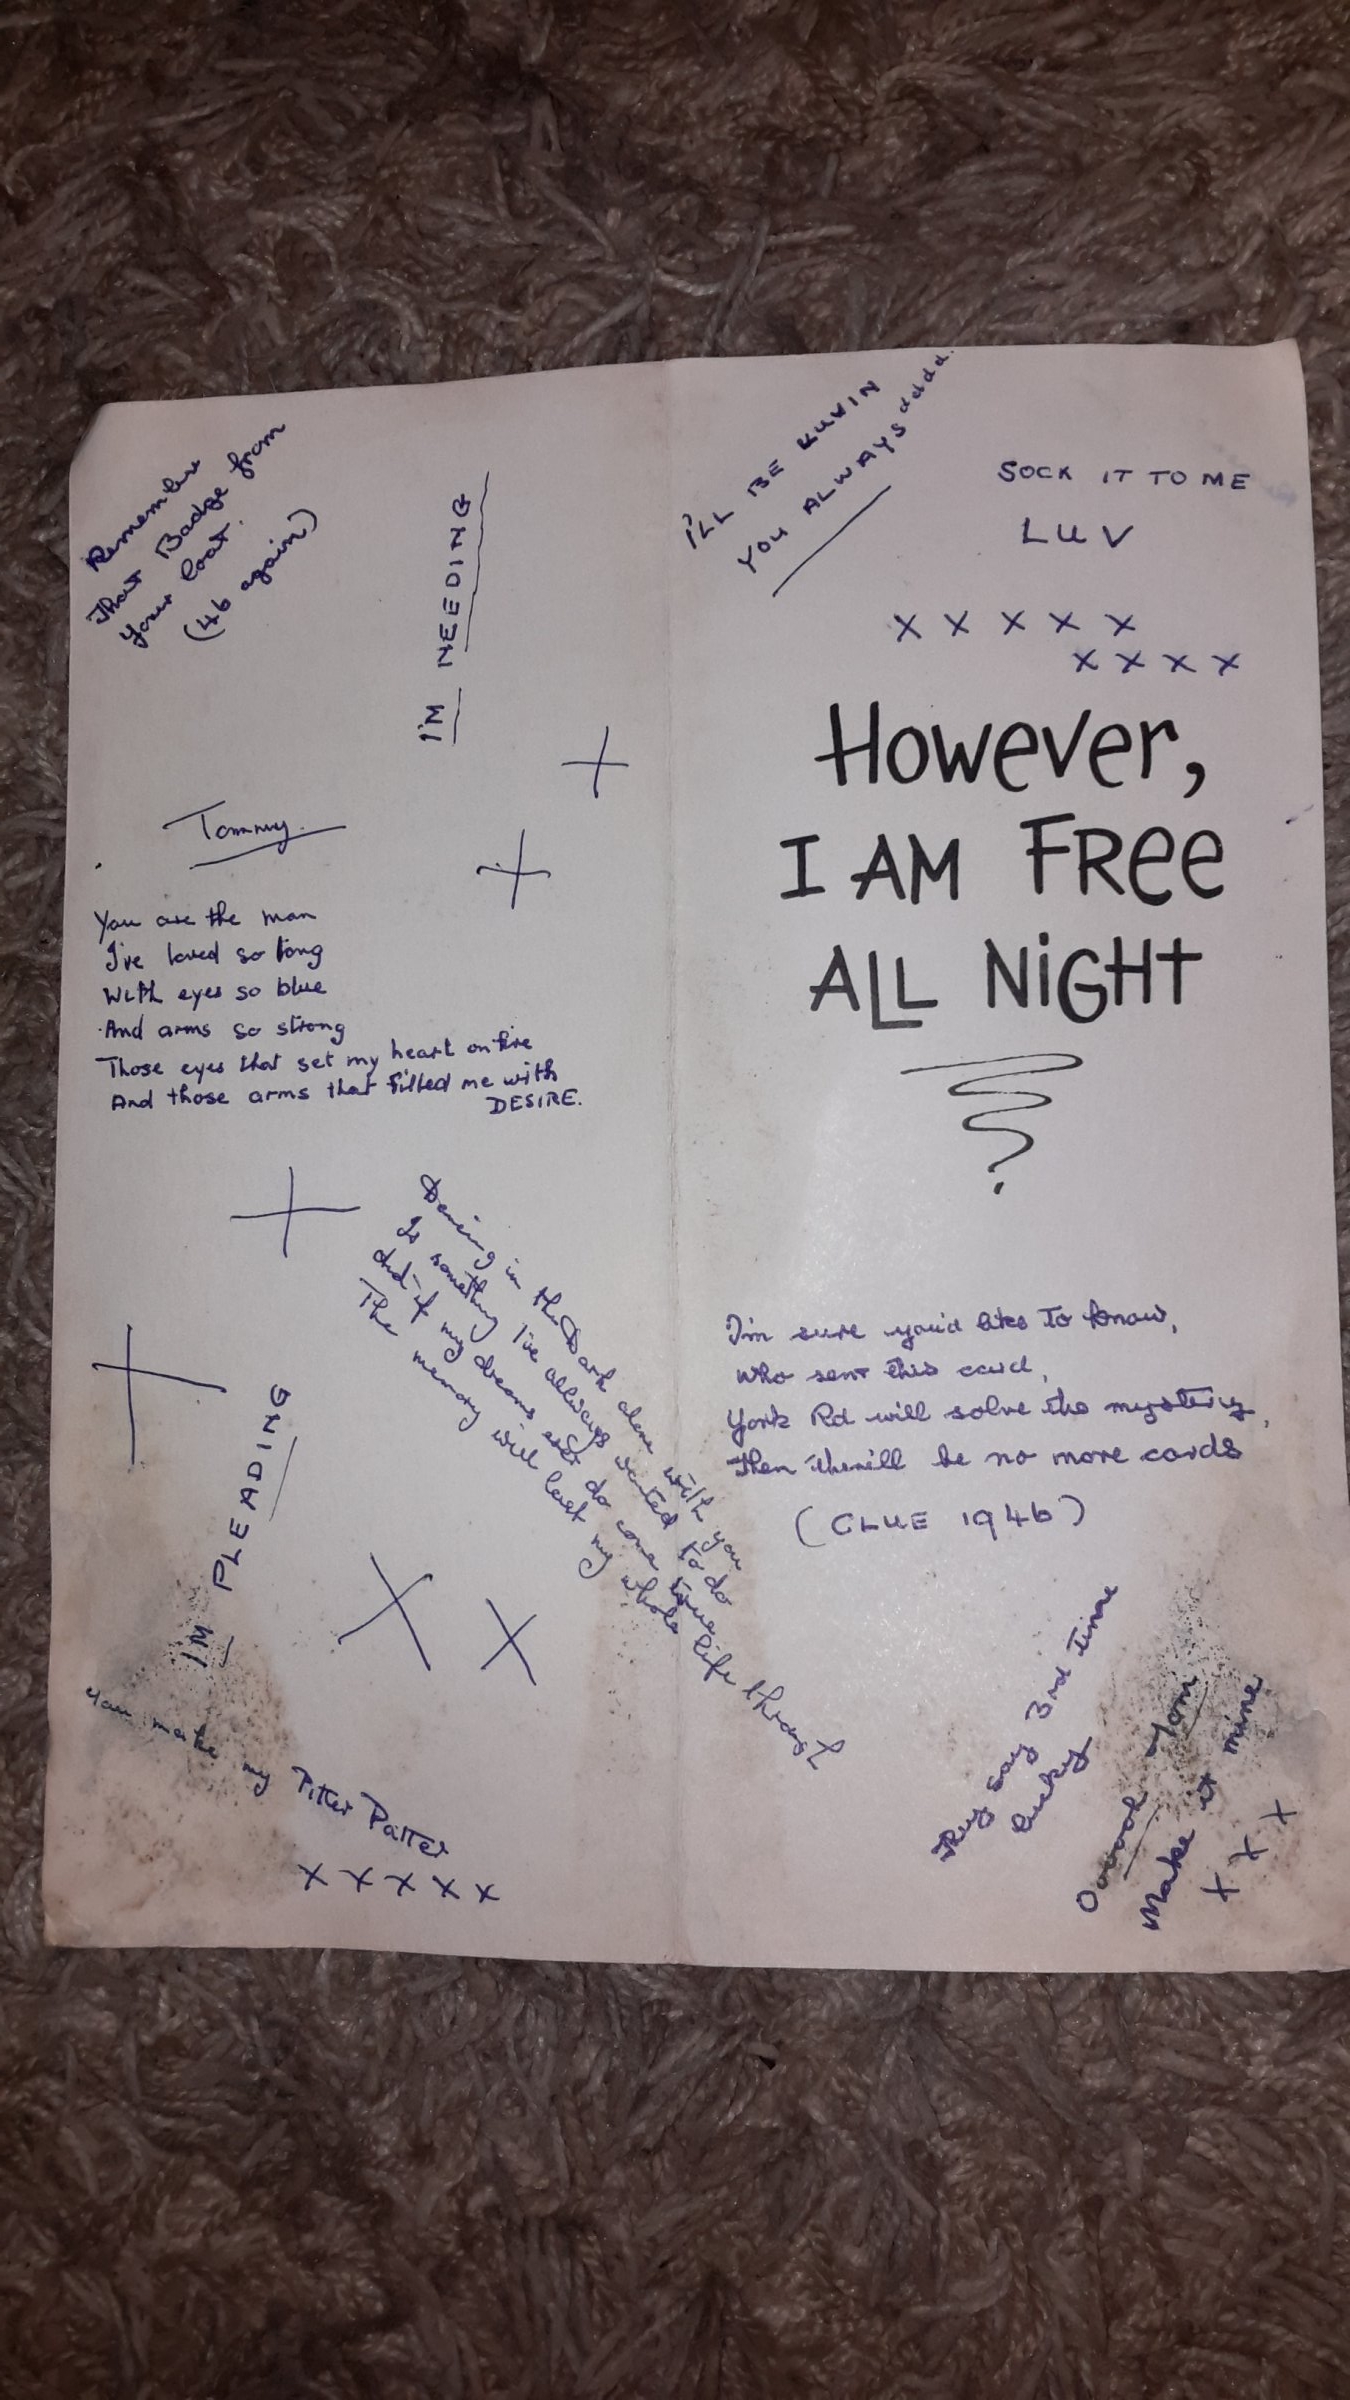 Remember
That Badge from
your Coat.
(46 again)
I'M NEEDING
Tommy.
You are the man
I've loved so long
With eyes so blue
And arms so strong
Those eyes that set my heart on fire
And those arms that filled me with
DESIRE.
Dancing in the Dark alone with you
Is something I've allways wanted to do
And if my dreams ever do come true
The memory will last my whole life through
I'M PLEADING
You make my Pitter Patter
X X X X X
I'LL BE LUVIN
YOU ALWAYS dddd.
SOCK IT TO ME
LUV
X X X X X
X X X X
However,
I AM FRee
ALL NiGHT
?
I'm sure you'd like to know,
Who sent this card,
York Rd will solve the mystery,
Then there'll be no more cards
(CLUE 1946)
They say 3rd Time
lucky
Oooooh Tom
Make it mine
X X X